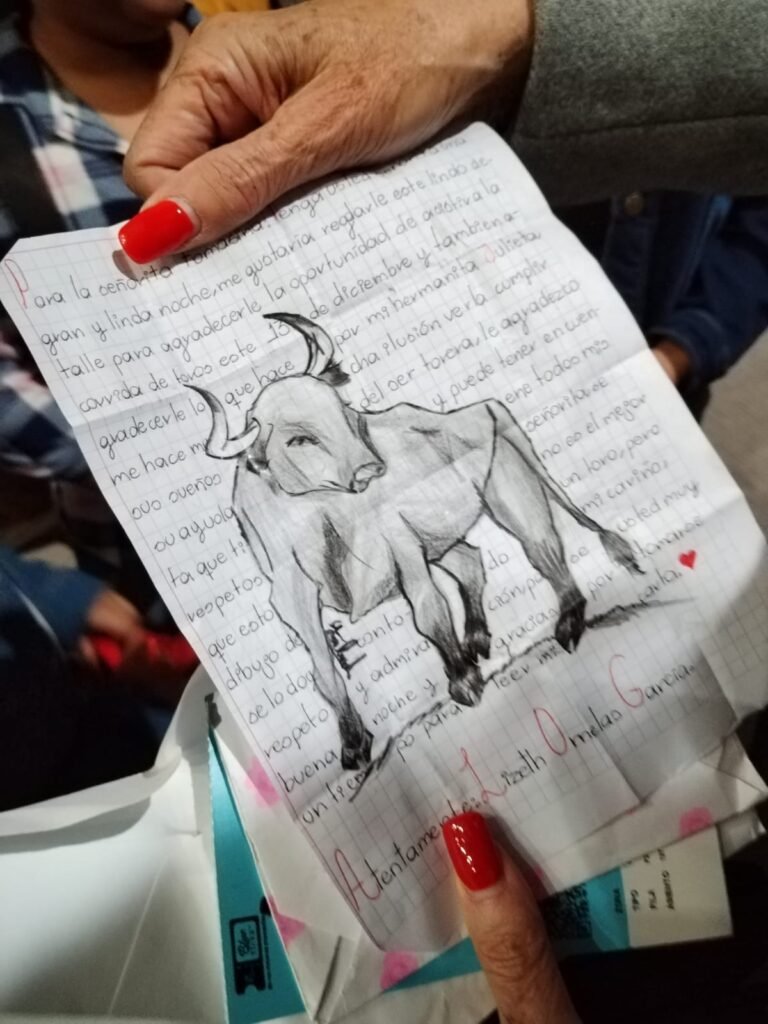 Para la señorita Tenga usted una
gran y linda noche, me gustaría regalarle este lindo de-
talle para agradecerle la oportunidad de asistir a la
corrida de toros este 13 de diciembre y tambien a-
gradecerle lo que hace por mi hermanita Julieta
me hace m cha ilusión verla cumplir
sus sueños del ser torera, le agradezco
su ayuda y puede tener en cuen-
ta que ti ene todos mis
respetos señorita, se
que esto no es el mejor
dibujo de un toro, pero
se lo doy con to do mi cariño,
respeto y admira ción, pase usted muy
buena noche y gracias por tomarse
un tiem po para leer mi carta.
Atentamente: Lizeth Ornelas García.
ZONA
TIPO
FILA
ASIENTO